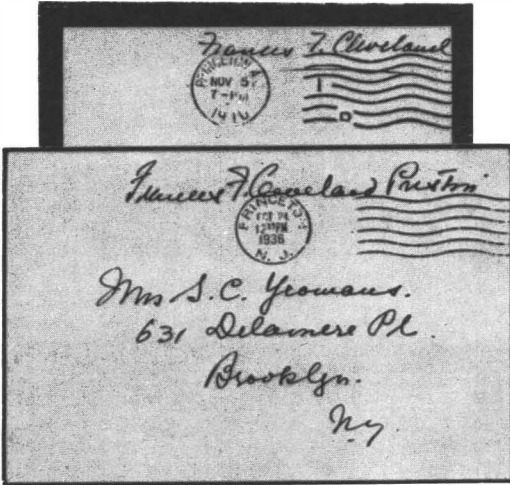 Frances F. Cleveland
PRINCETON
NOV 5
7-PM
1910
D
Frances F. Cleveland Preston
PRINCETON
OCT 24
12 PM
1936
N. J.
Mrs S. C. Yeomans.
631 Delamere Pl.
Brooklyn.
N.Y.